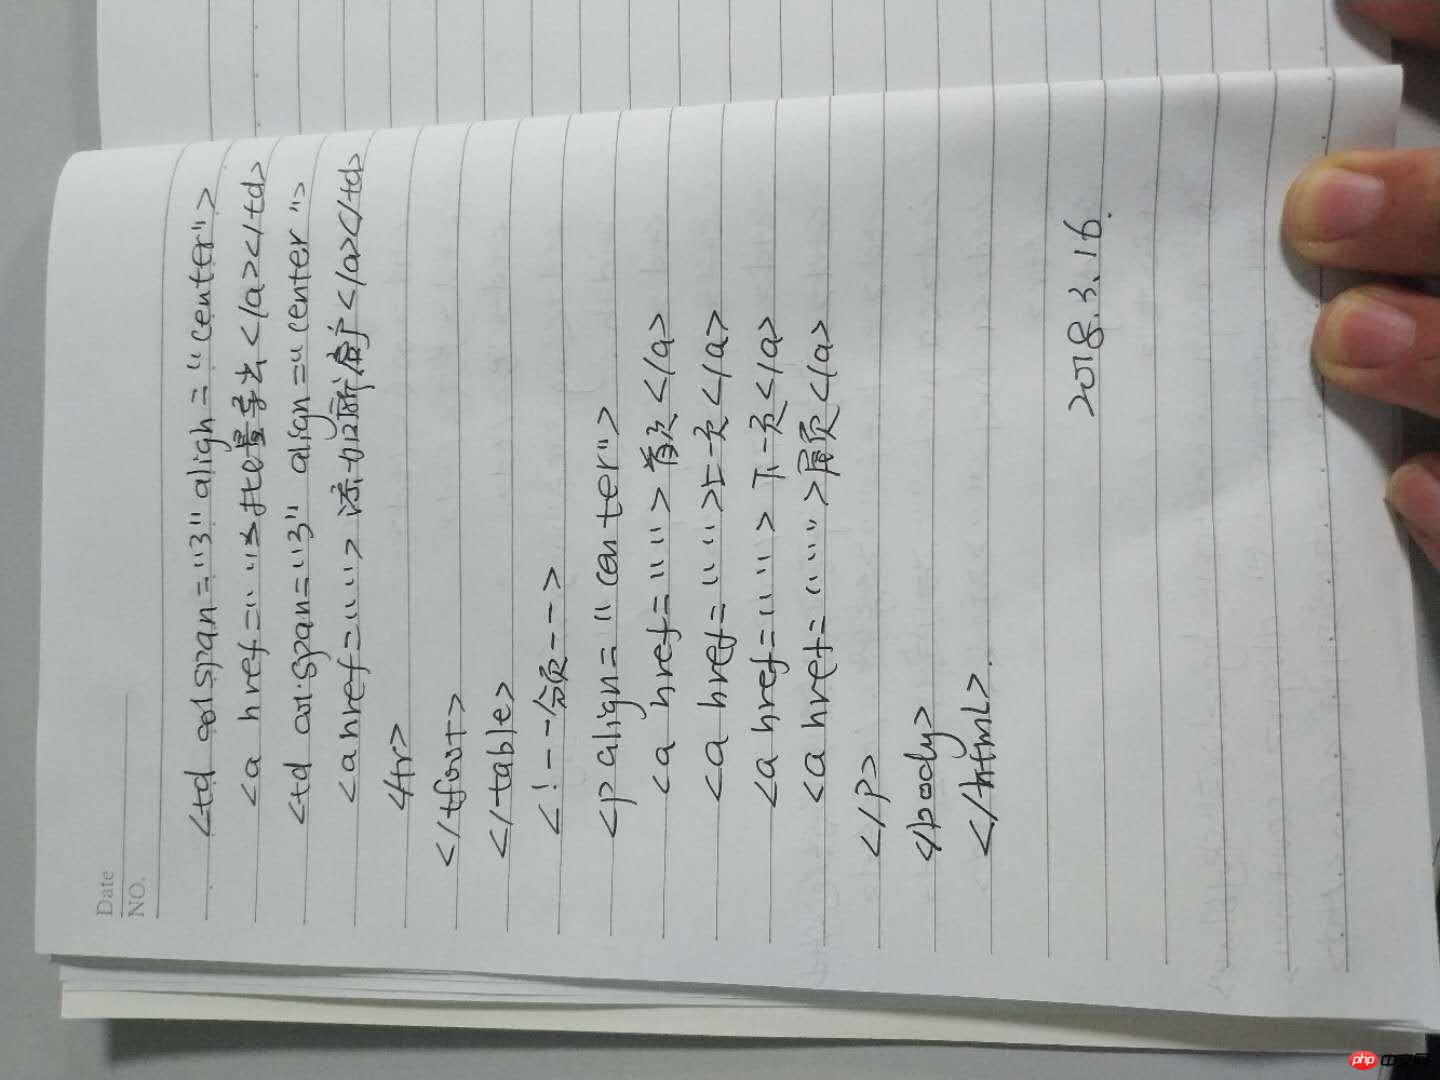 Date
NO.
<td colspan="3" aligh="center">
<a href=" ">批量导出</a></td>
<td colspan="3" align="center">
<a href=" ">添加新客户</a></td>
</tr>
</tfoot>
</table>
<!--分页-->
<p align="center">
<a href=" ">首页</a>
<a href=" ">上一页</a>
<a href=" ">下一页</a>
<a href=" ">尾页</a>
</p>
</body>
</html>
2018.3.16.
php 中文网